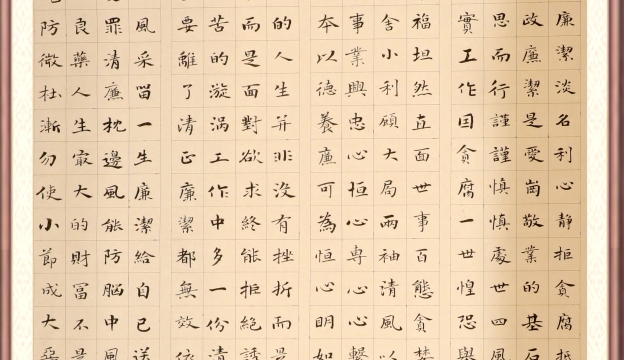 廉潔淡名利心靜拒貪腐抵
政廉潔是愛崗敬業的基石
思而行謹謹慎慎處世四風
實工作因貪腐一世惶恐與
福坦然直面世事百態貪婪
舍小利顧大局兩袖清風以
事業興忠心恒心專心心
本以德養廉可為恒心明如
的人生并非沒有挫折而
而是面對欲求終能拒絕誘
苦的漩涡工作中多一份清
要離了清正廉潔都無效依
風采留一生廉潔給自已送
罪清廉枕邊風能防腦中風
良藥人生最大的財富不是
防微杜漸勿使小節成大惡